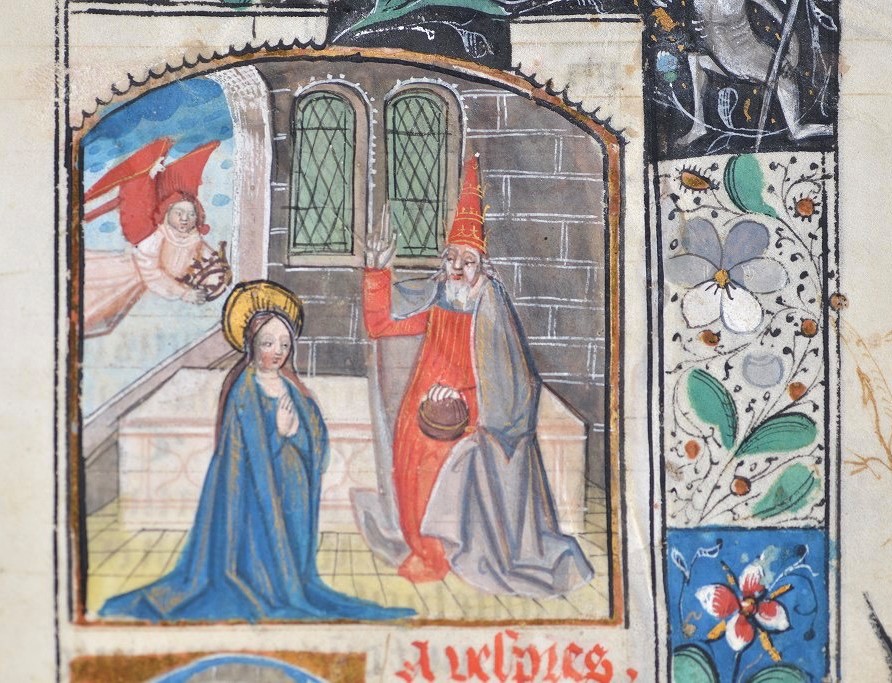 A vespres.